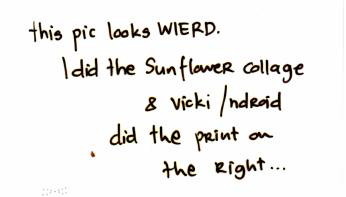 this pic looks WIERD.
I did the Sunflower collage
& Vicki /ndroid
did the print on
the Right...